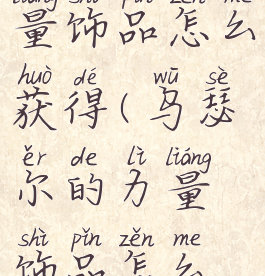 liàng shì pǐn zěn me
量饰品怎么
huò dé wū sè
获得(乌瑟
ěr de lì liàng
尔的力量
shì pǐn zěn me
饰品怎么